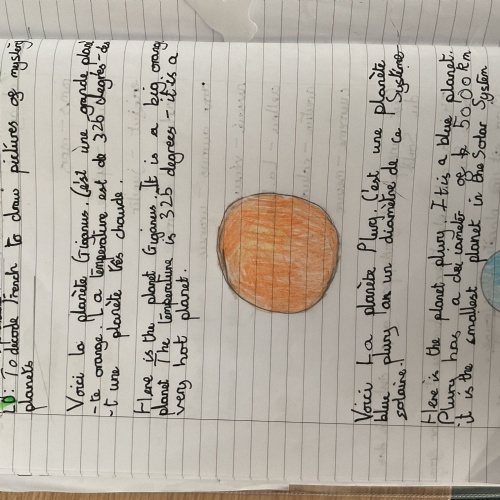 LO: To decode French to draw pictures of mystery
planets
Voici la planète Giganus. C'est une grande plané
-te orange. La température est de 325 degrés - de
-t une planète trés chaude.
Here is the planet Giganus. It is a big orange
planet The temperature is 325 degrees - it is a
very hot planet.
Voici La planète Pluvy. C'est une planète
blue pluvy an un diamètre de ce Système
solaire.
Here is the planet pluvy. It is a blue planet.
Pluvy has a diameter of 5000 km
it is the smallest planet in the Solar System